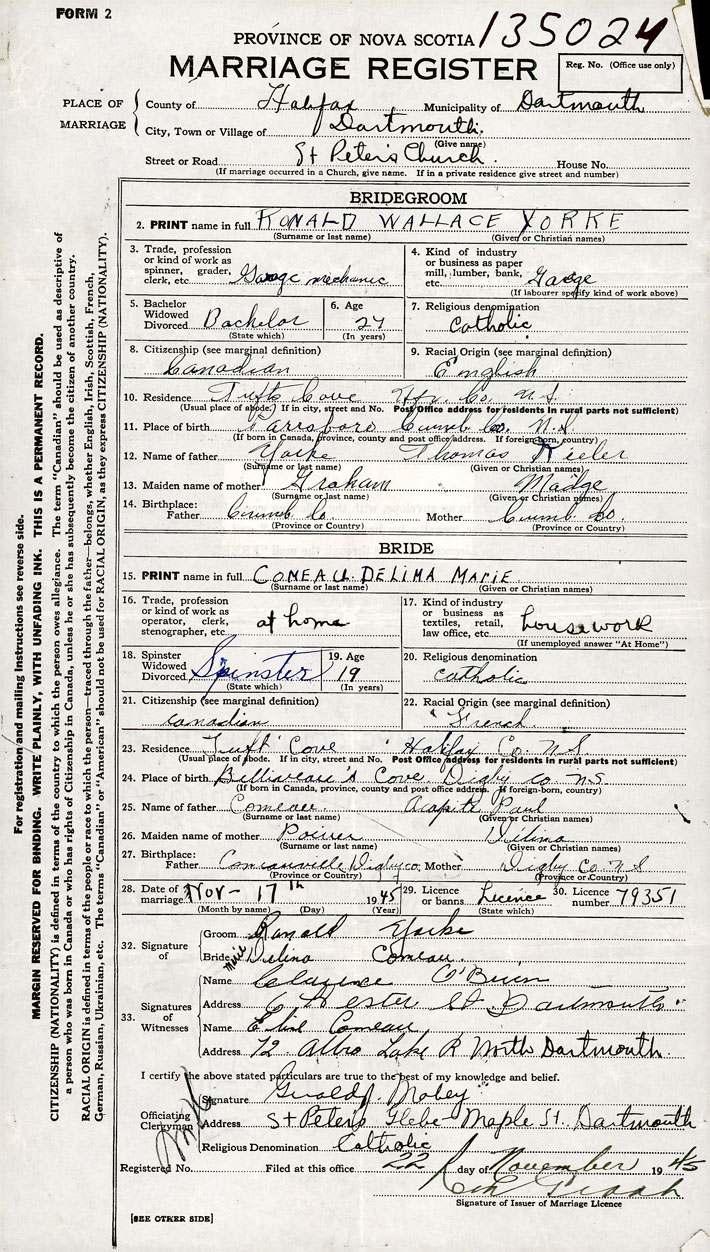 FORM 2
PROVINCE OF NOVA SCOTIA 135024
MARRIAGE REGISTER
Reg. No. (Office use only)
PLACE OF MARRIAGE
County of Halifax Municipality of Dartmouth
City, Town or Village of Dartmouth.
(Give name)
Street or Road St Peter's Church. House No.
(If marriage occurred in a Church, give name. If in a private residence give street and number)
BRIDEGROOM
2. PRINT name in full RONALD WALLACE YORKE
(Surname or last name) (Given or Christian names)
3. Trade, profession or kind of work as spinner, grader, clerk, etc. Garage mechanic
4. Kind of industry or business as paper mill, lumber, bank, etc. Garage
(If labourer specify kind of work above)
5. Bachelor Widowed Divorced Bachelor
(State which)
6. Age 27
(In years)
7. Religious denomination
Catholic
8. Citizenship (see marginal definition)
Canadian
9. Racial Origin (see marginal definition)
English
10. Residence Tufts Cove Hfx. Co. N.S.
(Usual place of abode.) If in city, street and No. Post Office address for residents in rural parts not sufficient)
11. Place of birth Parrsboro Cumb. Co. N.S.
(If born in Canada, province, county and post office address. If foreign-born, country)
12. Name of father Yorke Thomas
(Surname or last name) (Given or Christian names)
13. Maiden name of mother Graham Madge
(Surname or last name) (Given or Christian names)
14. Birthplace: Father Cumb Co. Mother Cumb Co.
(Province or Country) (Province or Country)
BRIDE
15. PRINT name in full COMEAU DELIMA MARIE
(Surname or last name) (Given or Christian names)
16. Trade, profession or kind of work as operator, clerk, stenographer, etc. at home
17. Kind of industry or business as textiles, retail, law office, etc. housework
(If unemployed answer "At Home")
18. Spinster Widowed Divorced Spinster
(State which)
19. Age
19
(In years)
20. Religious denomination
catholic
21. Citizenship (see marginal definition)
canadian
22. Racial Origin (see marginal definition)
French
23. Residence Tuft Cove Halifax Co. N.S
(Usual place of abode. If in city, street and No. Post Office address for residents in rural parts not sufficient)
24. Place of birth Belliveau's Cove Digby Co N.S.
(If born in Canada, province, county and post office address. If foreign-born, country)
25. Name of father Comeau Paul
(Surname or last name) (Given or Christian names)
26. Maiden name of mother
(Surname or last name) (Given or Christian names)
27. Birthplace: Father Comeauville Digby co. Mother Digby Co N S
(Province or Country) (Province or Country)
28. Date of marriage Nov - 17th 1945
(Month by name) (Day) (Year)
29. Licence or banns. Licence
(State which)
30. Licence number 79351
32. Signature of
Groom Ronald Yorke
Bride Marie Delina Comeau.
33. Signatures of Witnesses
Name Clarence O'Brien
Address 6 Hester St Dartmouth
Name Comeau
Address 72 Albro Lake R North Dartmouth.
I certify the above stated particulars are true to the best of my knowledge and belief.
Officiating Clergyman
Signature
Address St Peter's Glebe Maple St. Dartmouth
Religious Denomination Catholic
Registered No. Filed at this office 22 day of November 1945
Signature of Issuer of Marriage Licence
[SEE OTHER SIDE]
For registration and mailing instructions see reverse side.
MARGIN RESERVED FOR BINDING. WRITE PLAINLY, WITH UNFADING INK. THIS IS A PERMANENT RECORD.
CITIZENSHIP (NATIONALITY) is defined in terms of the country to which the person owes allegiance. The term "Canadian" should be used as descriptive of
a person who was born in Canada or who has rights of Citizenship in Canada, unless he or she has subsequently become the citizen of another country.
RACIAL ORIGIN is defined in terms of the people or race to which the person—traced through the father—belongs, whether English, Irish, Scottish, French,
German, Russian, Ukrainian, etc. The terms "Canadian" or "American" should not be used for RACIAL ORIGIN, as they express CITIZENSHIP (NATIONALITY).